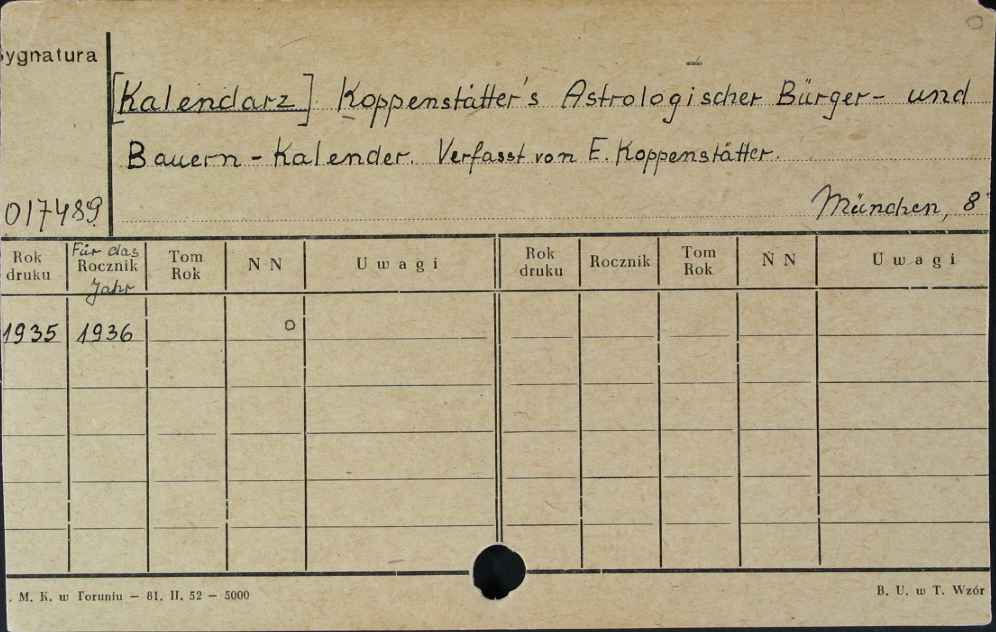 Sygnatura
[Kalendarz] Koppenstätter's Astrologischer Bürger- und
Bauern-Kalender. Verfasst von E. Koppenstätter.
017489
München, 8°
Rok druku Für das Rocznik Jahr Tom Rok N N Uwagi Rok druku Rocznik Tom Rok N N Uwagi
1935 1936
. M. K. w Toruniu — 81. II. 52 — 5000
B. U. w T. Wzór